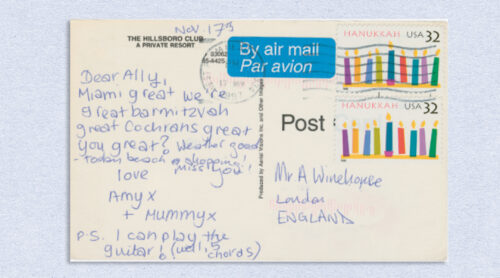 Nov 17th
THE HILLSBORO CLUB
A PRIVATE RESORT
Dear Ally,
Miami great we're
great barmitzvah
great Cochrans great
you great? Weather good
- today beach & shopping!
miss you!
love
Amy x
+ Mummy x
P.S. I can play the
guitar! (well, 5
chords)
Produced by Aerial Visions Inc. and Other Images
By air mail
Par avion
HANUKKAH USA 32
HANUKKAH USA 32
Post
Mr A Winehouse
London
ENGLAND